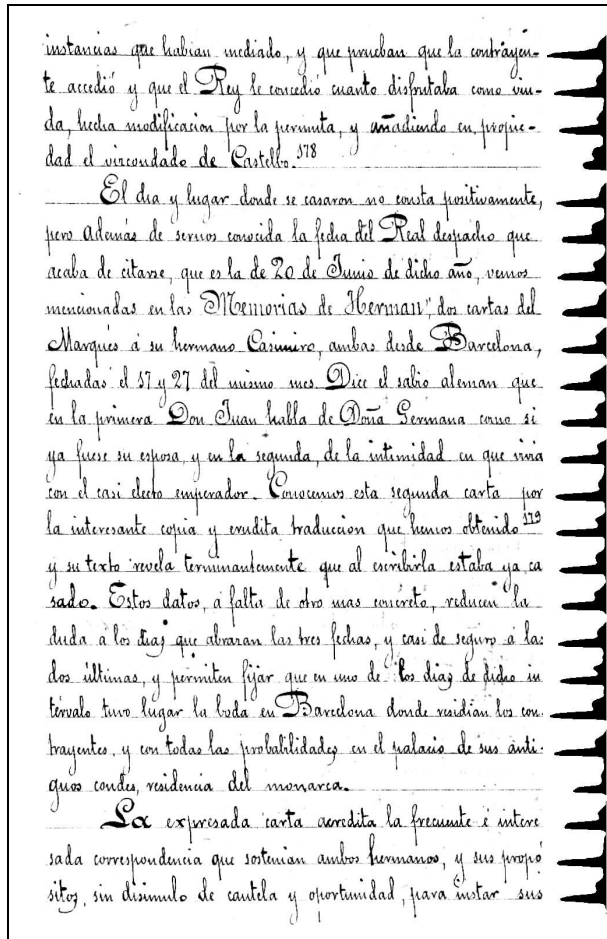 instancias que habian mediado, y que prueban que la contrayen-
te accedió y que el Rey le concedió cuanto disfrutaba como viu-
da, hecha modificacion por la permuta, y añadiendo en propie-
dad el vizcondado de Castelbo.578
El dia y lugar donde se casaron no consta positivamente,
pero además de sernos conocida la fecha del Real despacho que
acaba de citarse, que es la de 20 de Junio de dicho año, vemos
mencionadas en las "Memorias de Herman", dos cartas del
Marqués á su hermano Casimiro, ambas desde Barcelona,
fechadas el 17 y 27 del mismo mes. Dice el sabio aleman que
en la primera Don Juan habla de Doña Germana como si
ya fuese su esposa, y en la segunda, de la intimidad en que vivia
con el casi electo emperador. Conocemos esta segunda carta por
la interesante copia y erudita traduccion que hemos obtenido 579
y su texto revela terminantemente que al escribirla estaba ya ca
sado. Estos datos, á falta de otro mas concreto, reducen la
duda á los dias que abrazan las tres fechas, y casi de seguro á las
dos últimas, y permiten fijar que en uno de los dias de dicho in
térvalo tuvo lugar la boda en Barcelona donde residian los con
trayentes, y con todas las probabilidades en el palacio de sus anti-
guos condes, residencia del monarca.
La expresada carta acredita la frecuente é intere
sada correspondencia que sostenian ambos hermanos, y sus propó
sitos, sin disimulo de cautela y oportunidad, para instar sus